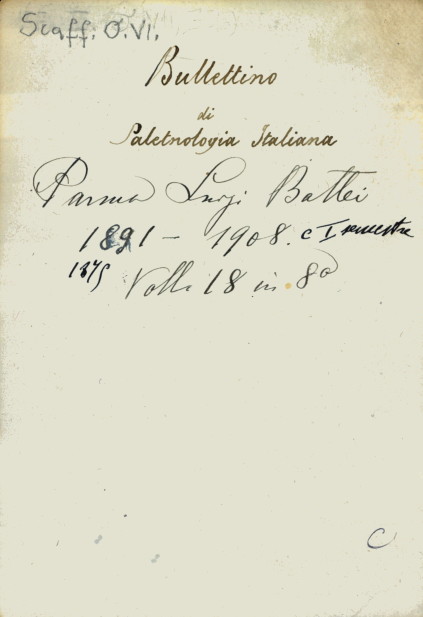 Scaff: O. VI.
Bullettino
di
Paletnologia Italiana
Parma Luigi Battei
1891 - 1908. e I semestre
1875
Voll. 18 in 8o
C